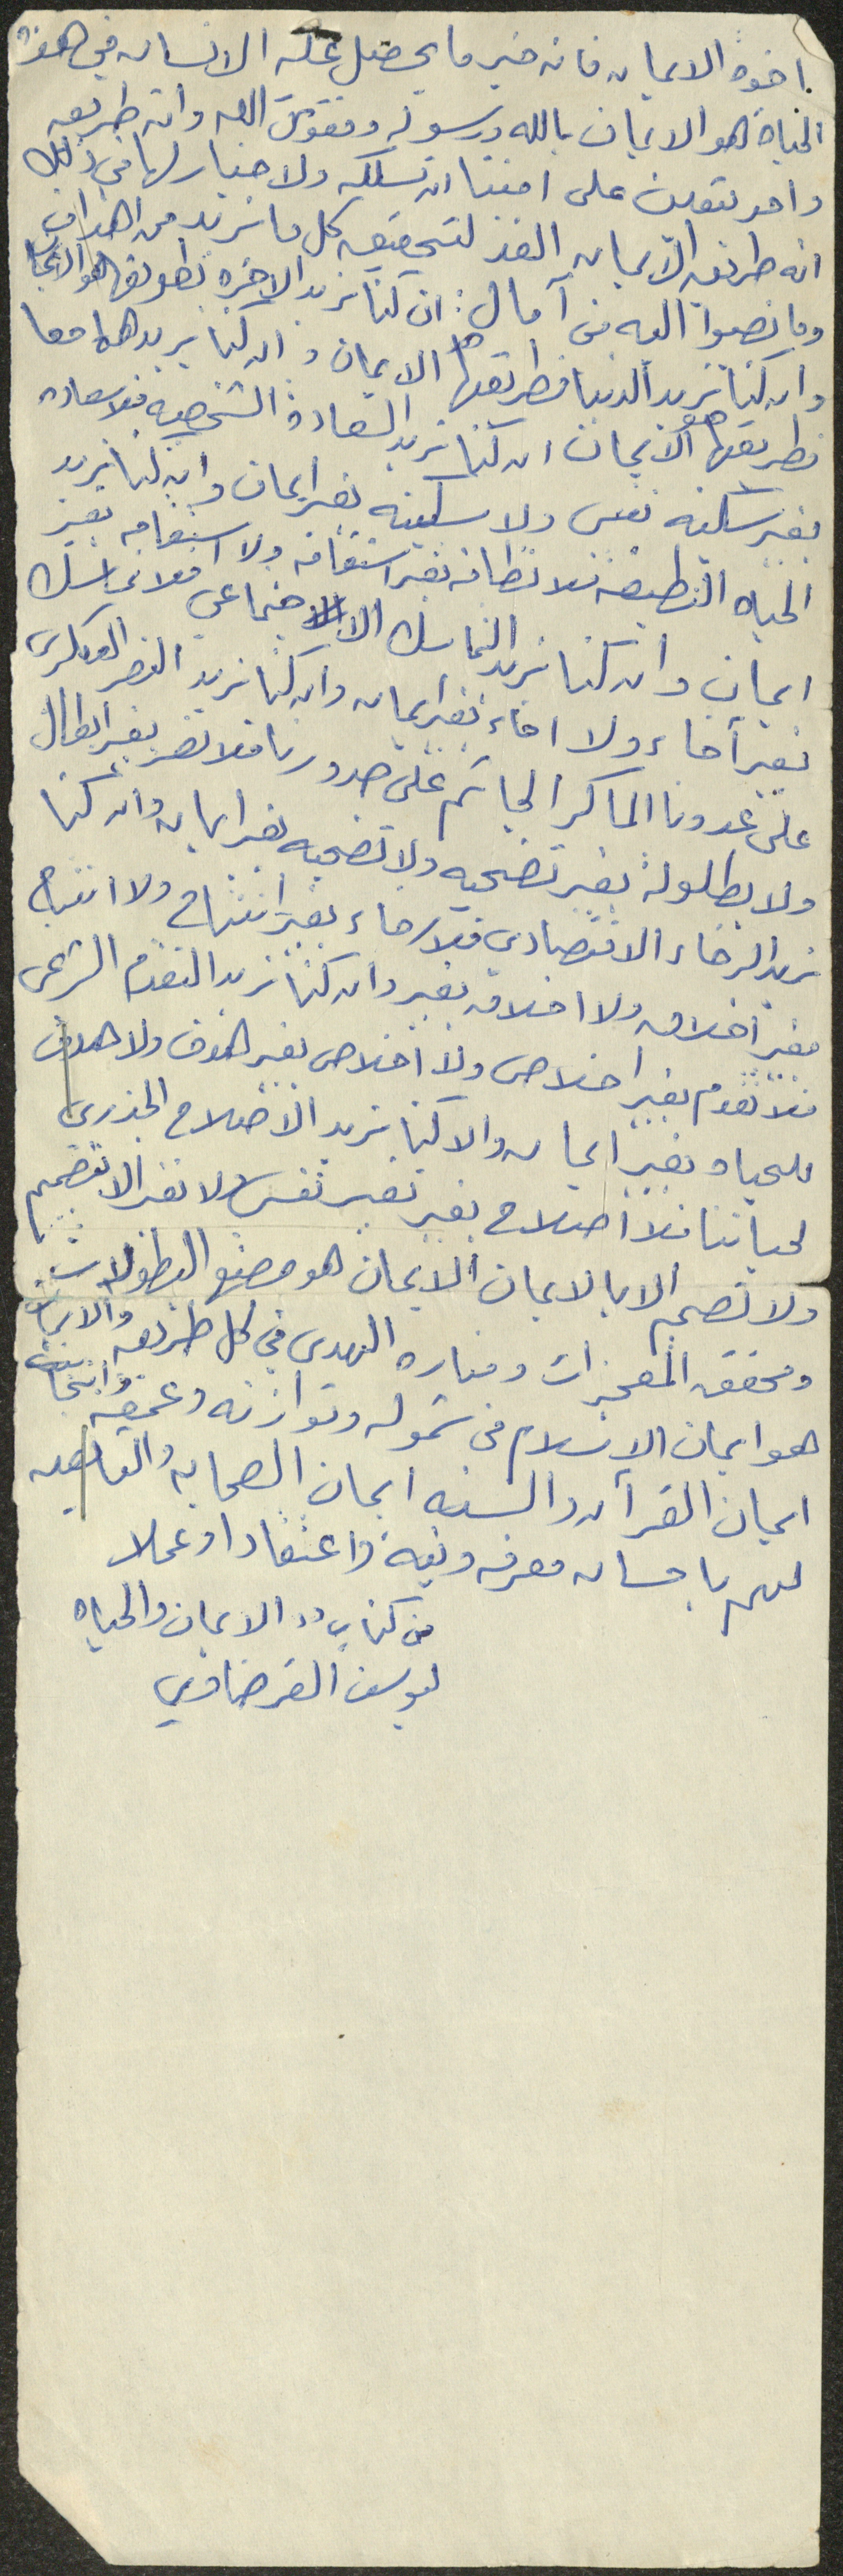 اخوة الايمان فانه خير ما يحصل عليه الانسان في هذه
الحياة هو الايمان بالله ورسوله وتقوى الله وانه طريقه
واحد يتعين على امتنا ان تسلكه ولا خيار لها في ذلك
انه طريق الايمان الفذ لتحقيق كل ما نريد من اهداف
وما نصبوا اليه من آمال: ان كنا نريد الاخره فطريقها هو الايمان
وان كنا نريد الدنيا فطريقها هو الايمان وان كنا نريدهما معا
فطريقها هو الايمان ان كنا نريد السعادة الشخصيه فلا سعاده
بغير سكينه نفس ولا سكينه بغير ايمان وان كنا نريد
الحياه النظيفه فلا نظافه بغير استقامه ولا استقامه بغير
ايمان وان كنا نريد التماسك الاجتماعي فلا تماسك
بغير آخاء ولا اخاء بغير ايمان وان كنا نريد النصر العسكري
على عدونا الماكر الجاثم على صدورنا فلا نصر بغير ابطال
ولا بطلولة بغير تضحيه ولا تضحيه بغير ايمان وان كنا
نريد الرخاء الاقتصادي فلا رخاء بغير انتاج ولا انتاج
بغير اخلاق ولا اخلاق بغير وان كنا نريد التقدم الشرعي
فلا تقدم بغير اخلاص ولا اخلاص بغير هدف ولا هدف
للحياه بغير ايمان والا كنا نريد الاصلاح الجذري
لحياتنا فلا اصلاح بغير تغير نفس لا تغير الا بتصميم
ولا تصميم الا بالايمان الايمان هو مصنع البطولات
ومحقق المعجزات ومناره الهدى في كل طريق والايمان
هو ايمان الاسلام في شموله وتوازنه وعمقه وايجابيته
ايمان القرآن والسنه ايمان الصحابه والتابعين
لهم باحسان معرفه ونية واعتقادا وعملا
من كتاب "الايمان والحياه
ليوسف القرضاوي